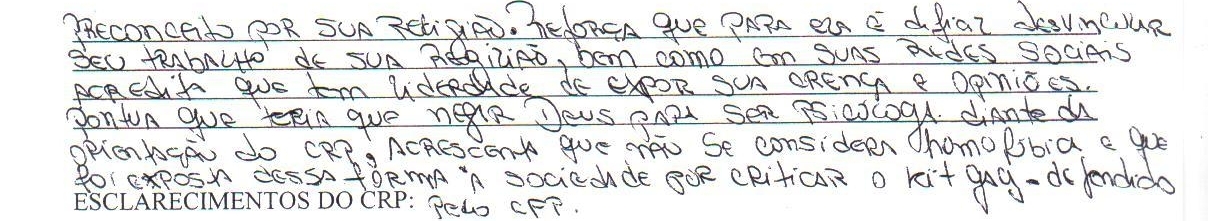 PRECONCEITO POR SUA RELIGIÃO. REFORÇA QUE PARA ELA É difiaz DESVINCULAR
SEU TRABALHO DE SUA REGIZIÃO, bem como em SUAS REDES SOCIAIS
ACREDITA QUE tem LIDERDADE DE EXPOR SUA CRENÇA E OPINIÕES.
PONTUA QUE teria que negar Deus PARA SER PSICÓLOGA diante da
ORIENTAÇÃO DO CRP, ACRESCENTA QUE NÃO SE CONSIDERA homofóbica e que
foi EXPOSTA DESSA FORMA À SOCIEDADE POR CRITICAR O Kit gay - defendido
ESCLARECIMENTOS DO CRP: PELO CFP.